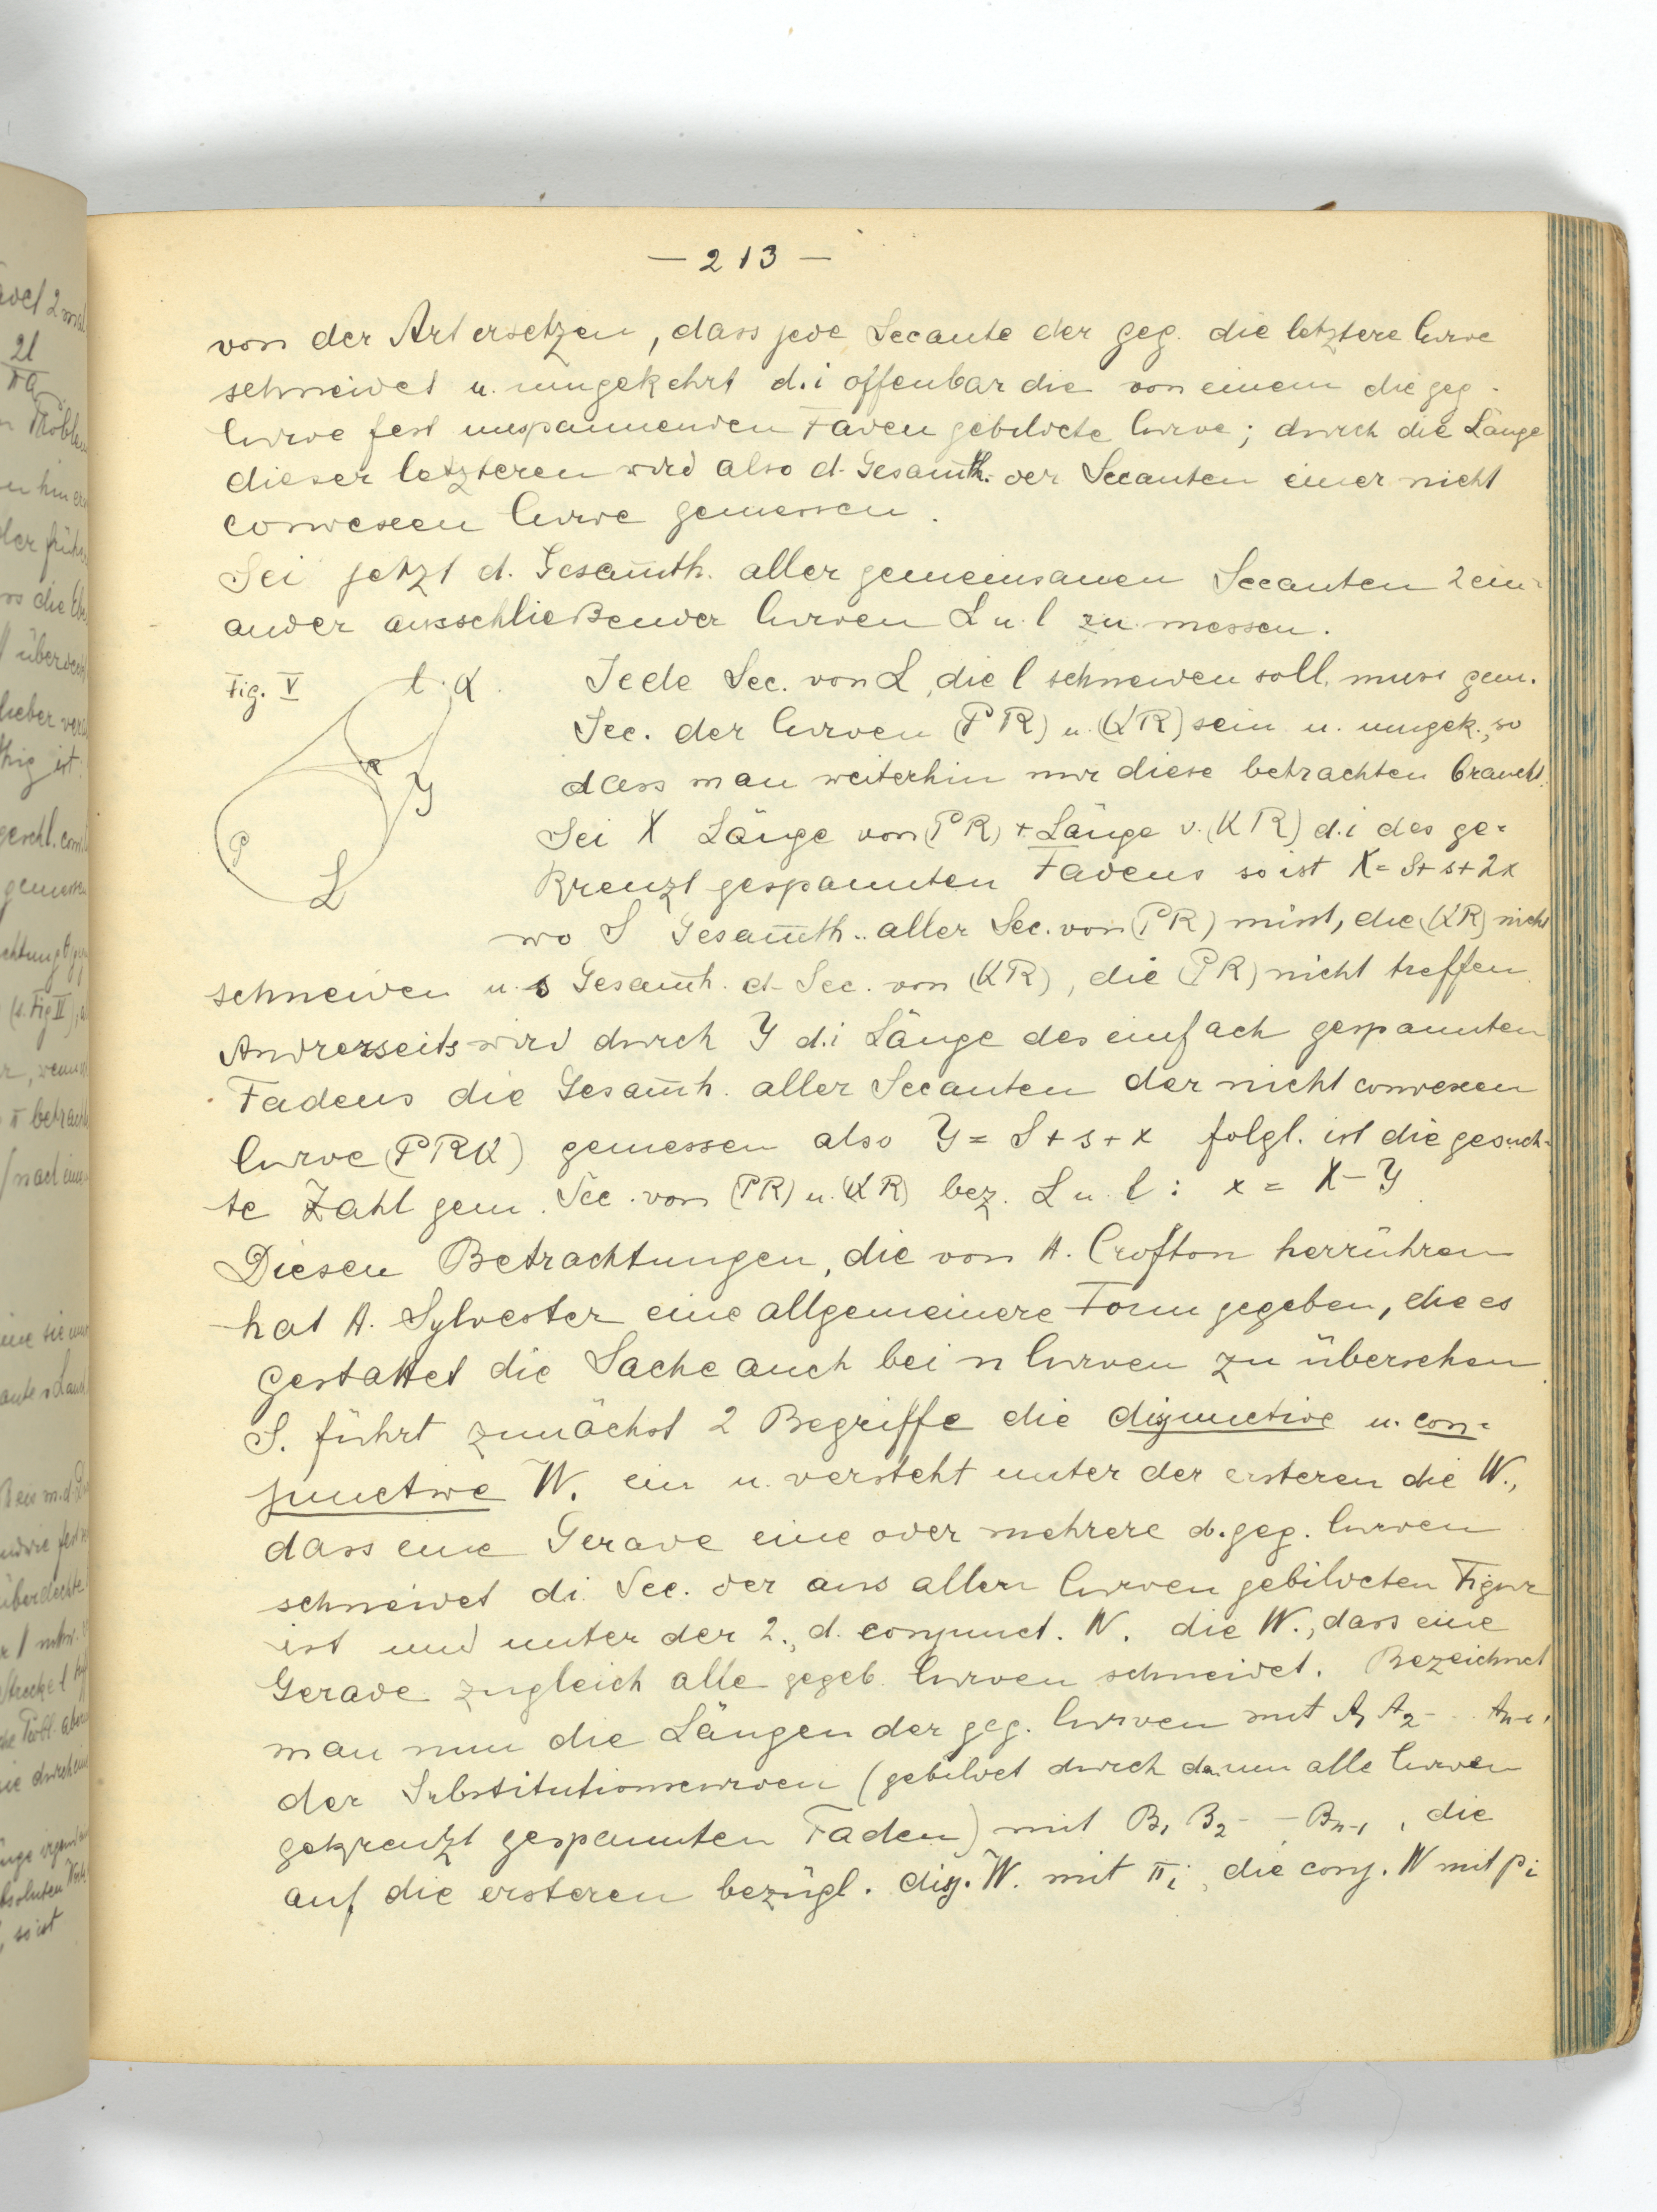 — 213 —
von der Art ersetzen, dass jede Secante der geg. die letztere Curve
schneidet u. umgekehrt d.i offenbar die von einem die geg.
Curve fest umspannenden Faden gebildete Curve; durch die Länge
dieser letzteren wird also d. Gesam̄th. der Secanten einer nicht
convexen Curve gemessen.
Sei jetzt d. Gesam̄th. aller gemeinsamen Secanten 2 ein-
ander ausschließender Curven L u. l zu messen.
Fig. V
l K
R
Y
P
L
Jede Sec. von L, die l schneiden soll, muss gem.
Sec. der Curven (PR) u. (KR) sein u. umgek., so
dass man weiterhin nur diese betrachten braucht.
Sei X Länge von (PR) + Länge v. (KR) d.i des ge-
kreuzt gespannten Fadens so ist X = S + s + 2x
wo S Gesam̄th. aller Sec. von (PR) misst, die (KR) nicht
schneiden u. s Gesam̄th. d. Sec. von (KR), die (PR) nicht treffen.
Andrerseits wird durch Y d.i Länge des einfach gespannten
Fadens die Gesam̄th. aller Secanten der nicht convexen
Curve (PRK) gemessen also Y = S + s + x folgl. ist die gesuch-
te Zahl gem. Sec. von (PR) u. (KR) bez. L u. l : x = X – Y
Diesen Betrachtungen, die von H. Crofton herrühren
hat H. Sylvester eine allgemeinere Form gegeben, die es
gestattet die Sache auch bei n Curven zu übersehen.
S. führt zunächst 2 Begriffe die disjunctive u. con-
junctive W. ein u. versteht unter der ersteren die W.,
dass eine Gerade eine oder mehrere d. geg. Curven
schneidet d.i. Sec. der aus allen Curven gebildeten Figur
ist und unter der 2., d. conjunct. W. die W., dass eine
Gerade zugleich alle gegeb. Curven schneidet. Bezeichnet
man nun die Längen der geg. Curven mit A1 A2 - - An-1,
der Substitutionscurven (gebildet durch d. um alle Curven
gekreuzt gespannten Faden) mit B1 B2 - - Bn-1, die
auf die ersteren bezügl. disj. W. mit πi, die conj. W mit pi